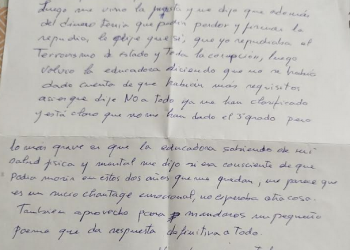 luego me vino la y me dijo que además
del que podía pondor y firmar la
repudia, le dije que si, que yo repudiaba el
Terrorismo de estado y Toda la corrupcion, luego
volvio la educadora diciendo que no se había
dado cuenta de que habían más requisitos
asique dije NO a todo ya me han clasificado
y está claro que no me han dado el 3º grado pero
lo más grave es que la educadora sabiendo de mi
salud física y mental me dijo si era consciente de que
podia morir en estos dos años que me quedan, me parece que
es un sucio chantaje emocional, no esperaba otra cosa.
Tambien aprovecho para mandaros un pequeño
poema que da respuesta definitiva a todo.